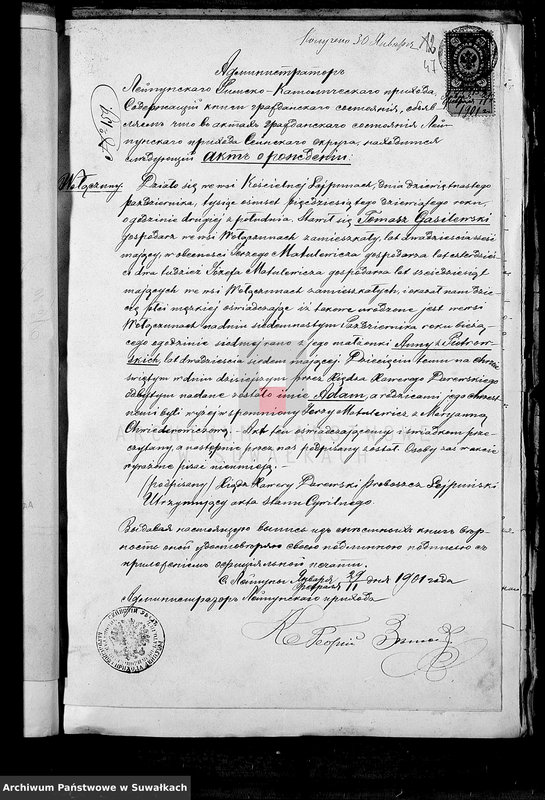 Получено 30 Января
47
1901
Администраторъ
Лейпунскаго Римско-Католическаго прихода,
Содержащій книги гражданскаго состоянія, объяв-
ляетъ что въ актахъ гражданскаго состоянія Лей-
пунскаго прихода Сейнскаго округа, находится
слѣдующій актъ о рожденіи:
Wołączuny.
Działo się we wsi Kościelnej Lejpunach, dnia dziewiętnastego
października, tysiąc ośmset pięćdziesiątego dziewiątego roku,
o godzinie drugiej z południa. Stawił się Tomasz Gasilewski
gospodarz we wsi zamieszkały, lat dwadzieścia sześć
mający, w obecności Jerzego Matulewicza gospodarza lat czterdzieś-
ci dwa tudzież Józefa Matulewicza gospodarza lat sześćdziesiąt
mających we wsi zamieszkałych, i okazał nam dzie-
cię płci męzkiej oświadczając iż takowe urodzone jest we wsi
na dniu siedemnastym Października roku bieżą-
cego o godzinie siódmej rano z jego małżonki Anny z Piotrow-
skich, lat dwadzieścia siedem mającej. Dziecięciu temu na chrzcie
świętym w dniu dzisiejszym przez Księdza Xawerego
odbytym nadane zostało imie Adam, a rodzicami jego chrzest-
nemi byli wyżej wspomniony Jerzy Matulewicz z Maryanną
Akt ten oświadczającemu i świadkom prze-
czytany, a następnie przez nas podpisany został. Osoby zaś w akcie
wyrażone pisać nieumieją.-
(podpisany) Ksiądz Xawery Proboszcz Lejpuński
Utrzymujący akta Stanu Cywilnego.
Выдавая настоящую выпись изъ книгъ вѣр-
ность оной удостовѣряю своею подлинною подписью съ
приложеніемъ оффиціальной печати.
С. Лейпуны Января 29 / Февраля 11 дня 1901 года
Администраторъ Лейпунскаго прихода
К. Георгій
Archiwum Państwowe w Suwałkach